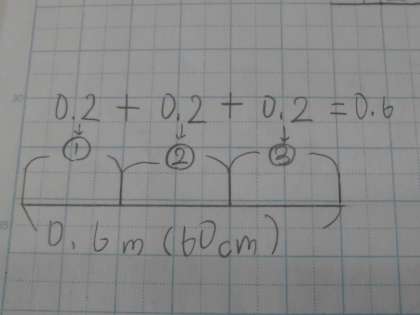 0.2 + 0.2 + 0.2 = 0.6
① ② ③
0.6m (60cm)